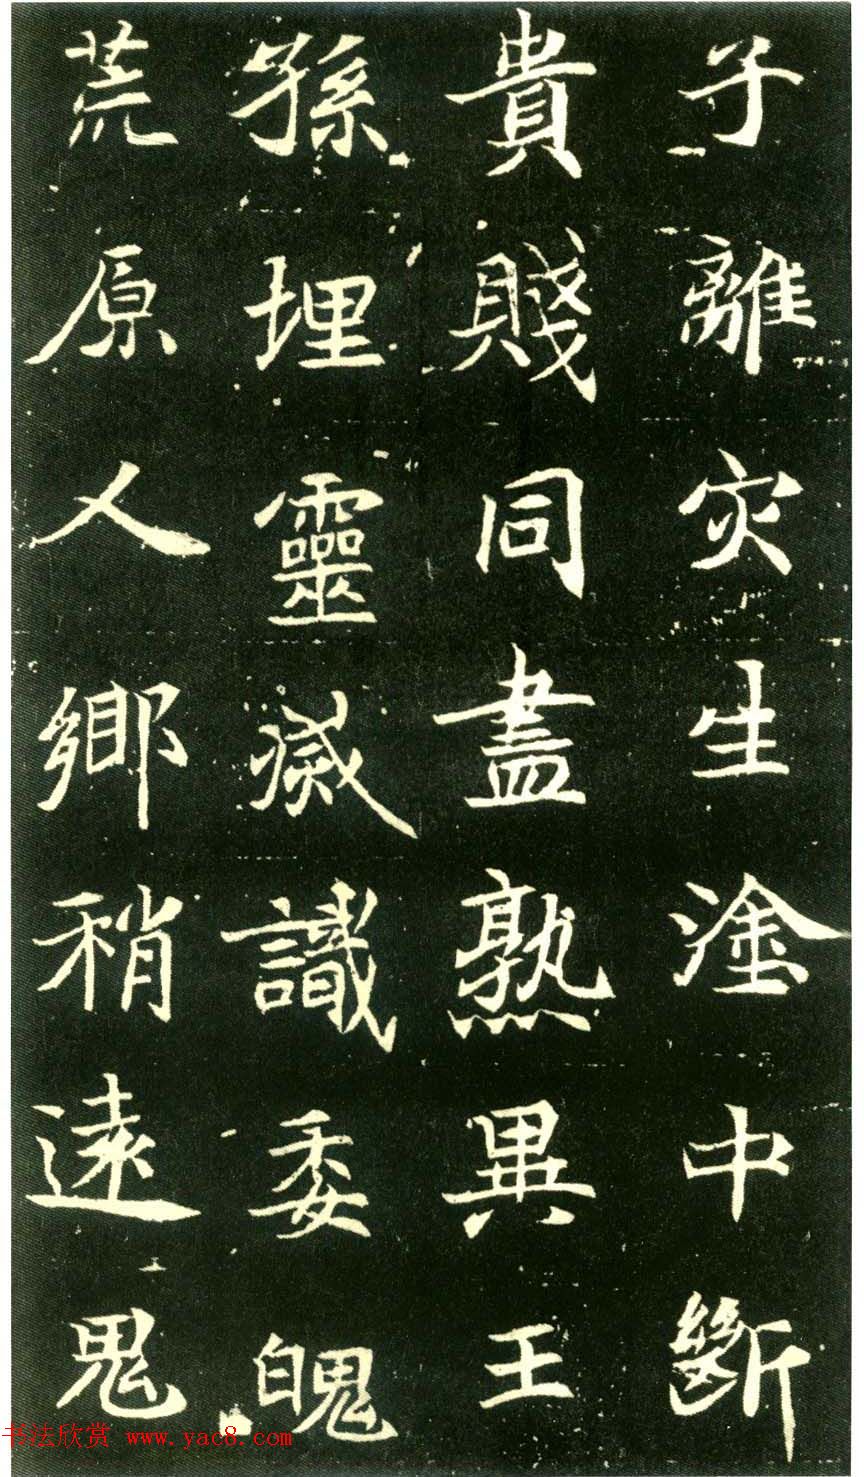 子離灾生塗中斷
貴賤同盡熟異王
孫埋靈滅識委魄
荒原人鄉稍遠鬼
书法欣赏 www.yac8.com